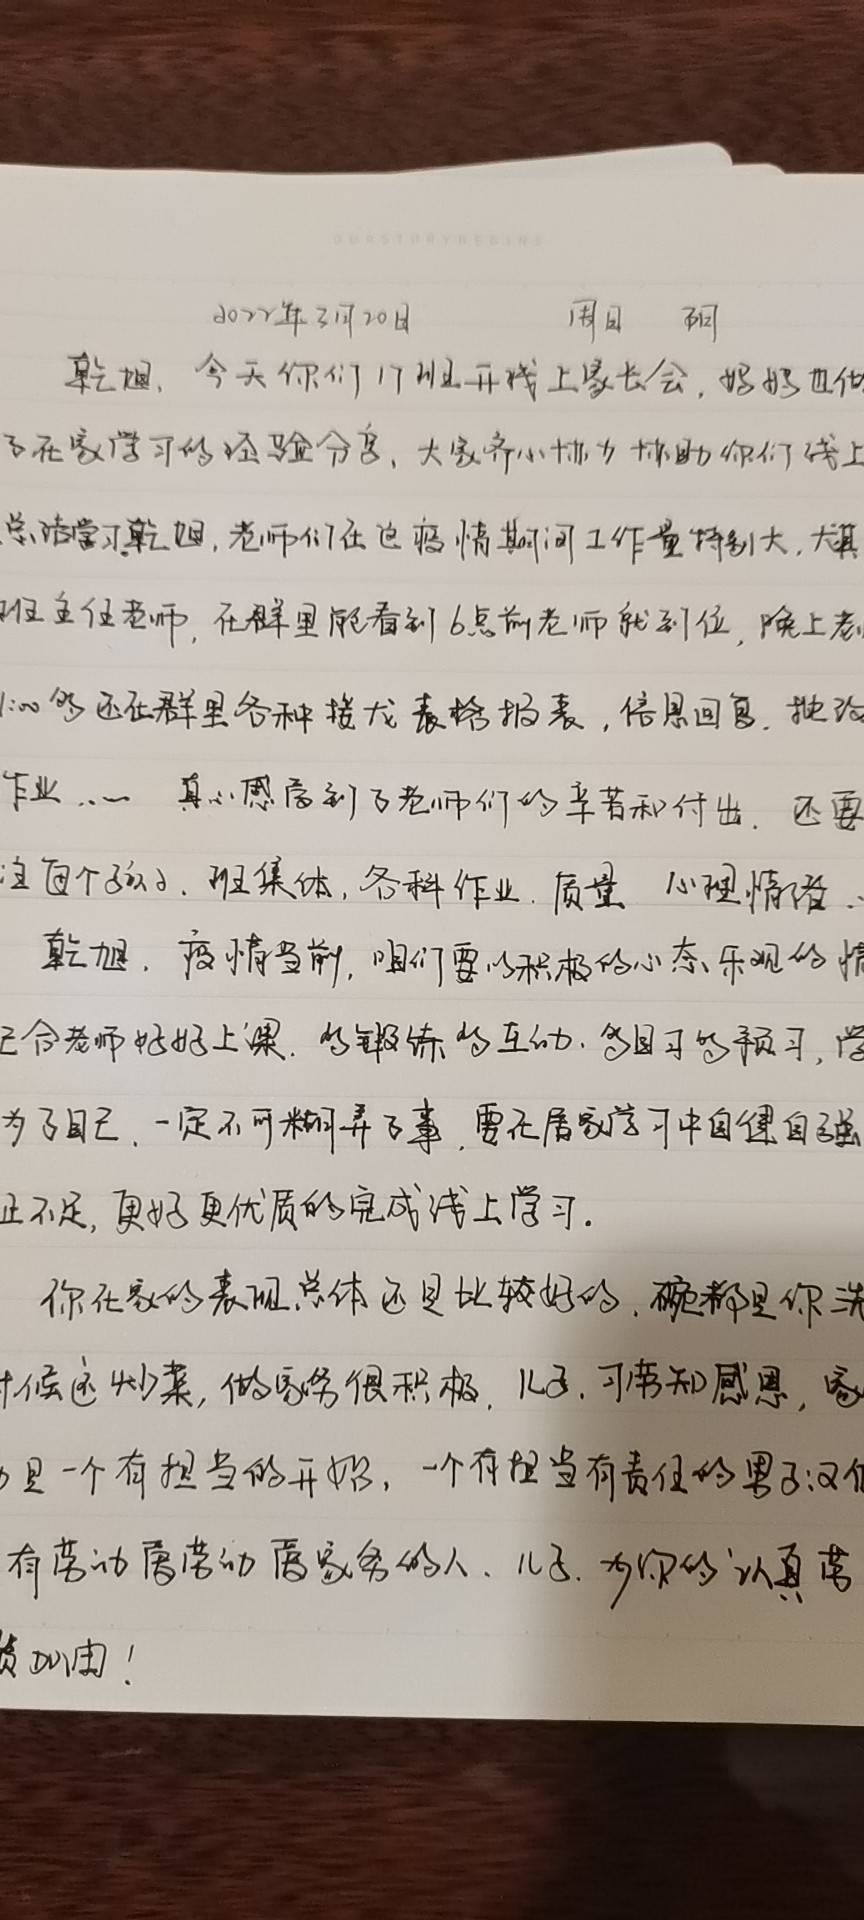 OURSTORYBEGINS
2022年3月20日 周日
乾旭、今天你们17班开线上家长会，妈妈也做
了在家学习的经验分享、大家齐心协力协助你们线上
学习.乾旭,老师们在这疫情期间工作量特别大,尤其
班主任老师,在群里能看到6点前老师就到位,晚上老
1:00多还在群里各种接龙表格报表,信息回复.批改
作业…… 真心感受到了老师们的辛苦和付出.还要
注每个孩子、班集体,各科作业.质量 心理情绪..
乾旭.疫情当前,咱们要以积极的心态、乐观的情
配合老师好好上课.的锻练的互动.的自习的预习,学
为了自己,一定不可糊弄了事,要在居家学习中自律自强
正不足,更好更优质的完成线上学习.
你在家的表现总体还是比较好的,碗都是你洗
时候还炒菜,做家务很积极,儿子.习劳知感恩,家
是一个有担当的开始,一个有担当有责任的男子汉
有劳动爱劳动爱家务的人、儿子.为你的认真劳
加油!